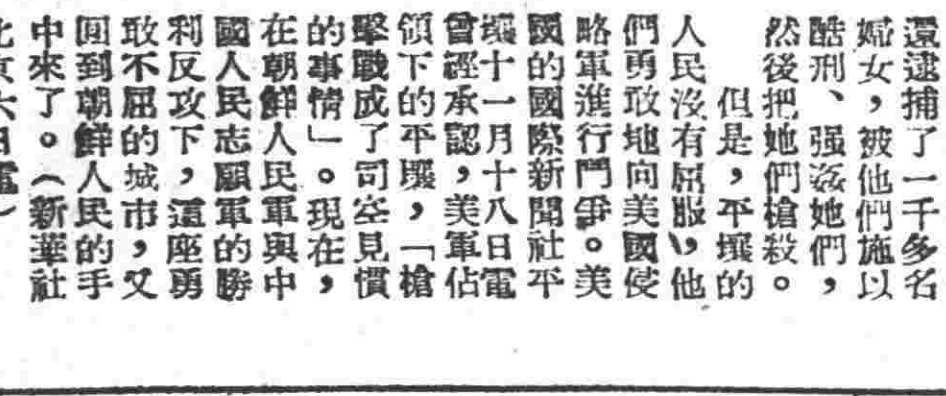 還逮捕了一千多名
婦女，被他們施以
酷刑、强姦她們，
然後把她們槍殺。
但是，平壤的
人民沒有屈服，他
們勇敢地向美國侵
略軍進行鬥爭。美
國的國際新聞社平
壤十一月十八日電
曾經承認，美軍佔
領下的平壤，「槍
擊戰成了司空見慣
的事情」。現在，
在朝鮮人民軍與中
國人民志願軍的勝
利反攻下，這座勇
敢不屈的城市，又
回到朝鮮人民的手
中來了。（新華社
北京六日電）